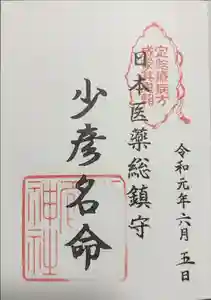 日本医薬総鎮守
少彦名命
令和元年六月五日